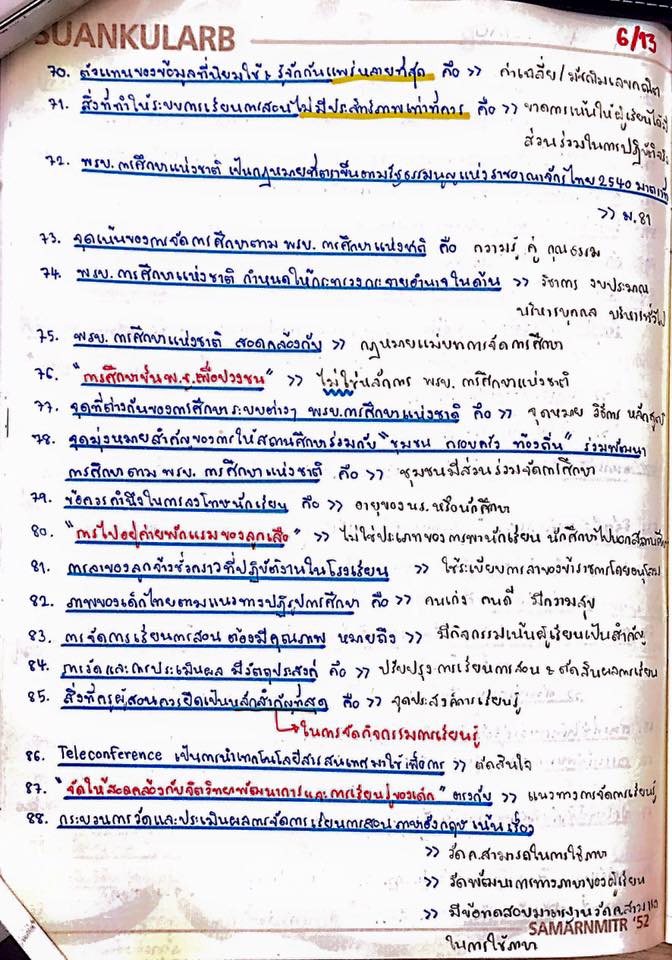 SUANKULARB
6/13
70. ตัวแทนของข้อมูลที่นิยมใช้ & รู้จักกันแพร่หลายที่สุด คือ >> ค่าเฉลี่ย/มัชฌิมเลขคณิต
71. สิ่งที่ทำให้ระบบการเรียนการสอนไม่มีประสิทธิภาพเท่าที่ควร คือ >> ขาดการเน้นให้ผู้เรียนได้มี
ส่วนร่วมในการปฏิบัติจริง
72. พรบ. การศึกษาแห่งชาติ เป็นกฎหมายที่ตราขึ้นตามรัฐธรรมนูญแห่งราชอาณาจักรไทย 2540 มาตราที่
>> ม.81
73. จุดเน้นของการจัดการศึกษาตาม พรบ. การศึกษาแห่งชาติ คือ ความรู้ คู่ คุณธรรม
74. พรบ. การศึกษาแห่งชาติ กำหนดให้กระทรวงกระจายอำนาจในด้าน >> วิชาการ งบประมาณ
บริหารบุคคล บริหารทั่วไป
75. พรบ. การศึกษาแห่งชาติ สอดคล้องกับ >> กฎหมายแม่บทการจัดการศึกษา
76. "การศึกษาขั้น พ.ฐ. เพื่อปวงชน" >> ไม่ใช่หลักการ พรบ. การศึกษาแห่งชาติ
77. จุดที่ต่างกันของการศึกษาระบบต่างๆ พรบ.การศึกษาแห่งชาติ คือ >> จุดหมาย วิธีการ หลักสูตร
78. จุดมุ่งหมายสำคัญของการให้สถานศึกษาร่วมกับ "ชุมชน ครอบครัว ท้องถิ่น" ร่วมพัฒนา
การศึกษาตาม พรบ. การศึกษาแห่งชาติ คือ >> ชุมชนมีส่วนร่วมจัดการศึกษา
79. ข้อควรคำนึงในการลงโทษนักเรียน คือ >> อายุของ นร. หรือนักศึกษา
80. "การไปอยู่ค่ายพักแรมของลูกเสือ" >> ไม่ใช่ประเภทของการพานักเรียน นักศึกษาไปนอกสถานศึกษา
81. การลาของลูกจ้างชั่วคราวที่ปฏิบัติงานในโรงเรียน >> ใช้ระเบียบการลาของข้าราชการโดยอนุโลม
82. ภาพของเด็กไทยตามแนวทางปฏิรูปการศึกษา คือ >> คนเก่ง คนดี มีความสุข
83. การจัดการเรียนการสอน ต้องมีคุณภาพ หมายถึง >> มีกิจกรรมเน้นผู้เรียนเป็นสำคัญ
84. การวัดและการประเมินผล มีวัตถุประสงค์ คือ >> ปรับปรุงการเรียนการสอน & ตัดสินผลการเรียน
85. สิ่งที่ครูผู้สอนควรยึดเป็นหลักสำคัญที่สุด คือ >> จุดประสงค์การเรียนรู้
ในการจัดกิจกรรมการเรียนรู้
86. Teleconference เป็นการนำเทคโนโลยีสารสนเทศมาใช้เพื่อการ >> ตัดสินใจ
87. "จัดให้สอดคล้องกับจิตวิทยาพัฒนาการและการเรียนรู้ของเด็ก" ตรงกับ >> แนวทางการจัดการเรียนรู้
88. กระบวนการวัดและประเมินผลการจัดการเรียนการสอนภาษาอังกฤษ เน้นเรื่อง
>> วัด ค.สามารถในการใช้ภาษา
>> วัดพัฒนาการทางภาษาของผู้เรียน
>> มีข้อทดสอบมาตรฐานวัด ค.สามารถ
ในการใช้ภาษา
SAMARNMITR '52